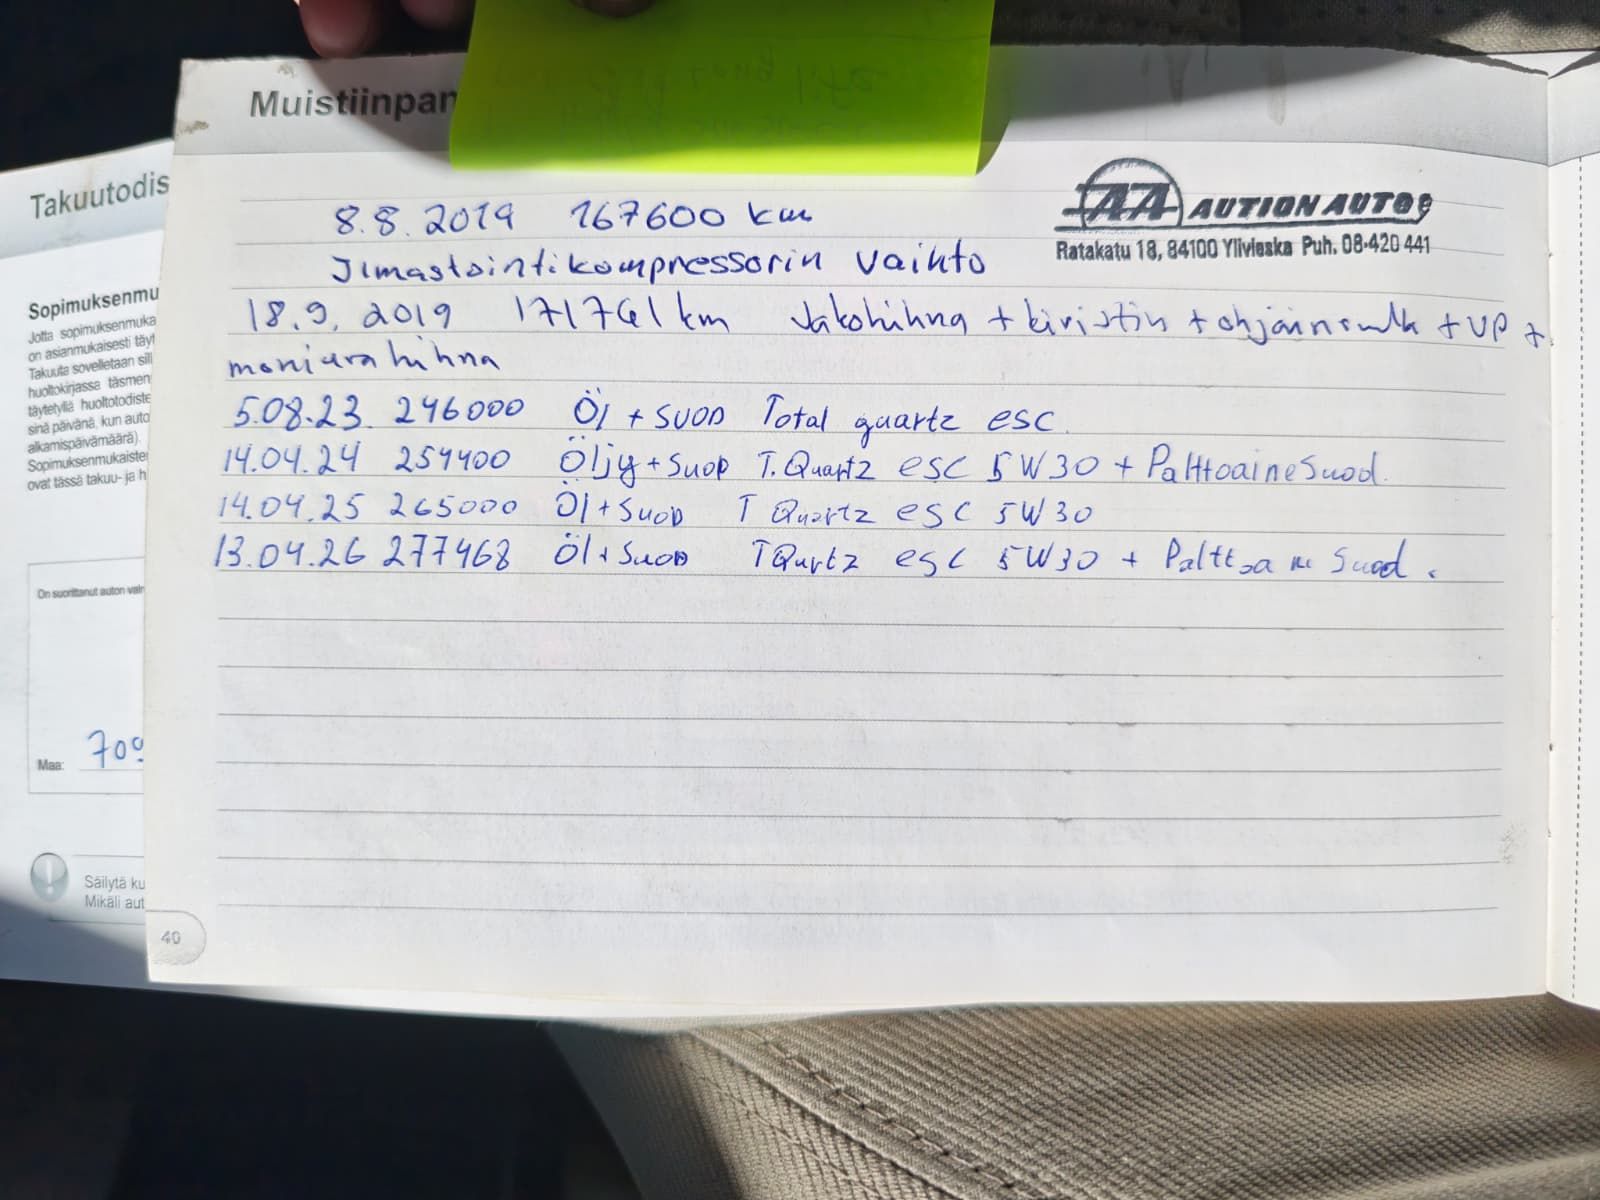 Muistiinpan
Takuutodis
AA AUTION AUTO
Ratakatu 18, 84100 Ylivieska Puh. 08-420 441
8.8.2019 167600 km
Ilmastointikompressorin vaihto
18.9.2019 171761 km Jakohihna + kiristin + ohjainrulla + VP +
moniurahihna
5.08.23. 246000 Öl + SUOD Total quartz esc.
14.04.24 254400 Öljy + SUOD T. Quartz esc 5W30 + Palttoaine Suod.
14.04.25 265000 Öl + SUOD T Quartz esc 5W30
13.04.26 277468 Öl + SUOD T Qurtz esc 5W30 + Suod.
Sopimuksenmu
Jotta sopimuksenmuka
on asianmukaisesti täyt
Takuuta sovelletaan sill
huoltokirjassa täsmen
täytetyllä huoltotodiste
sinä päivänä, kun auto
alkamispäivämäärä).
Sopimuksenmukaister
ovat tässä takuu- ja h
On suorittanut auton valm
Maa: 709
Säilytä ku
Mikäli aut
40